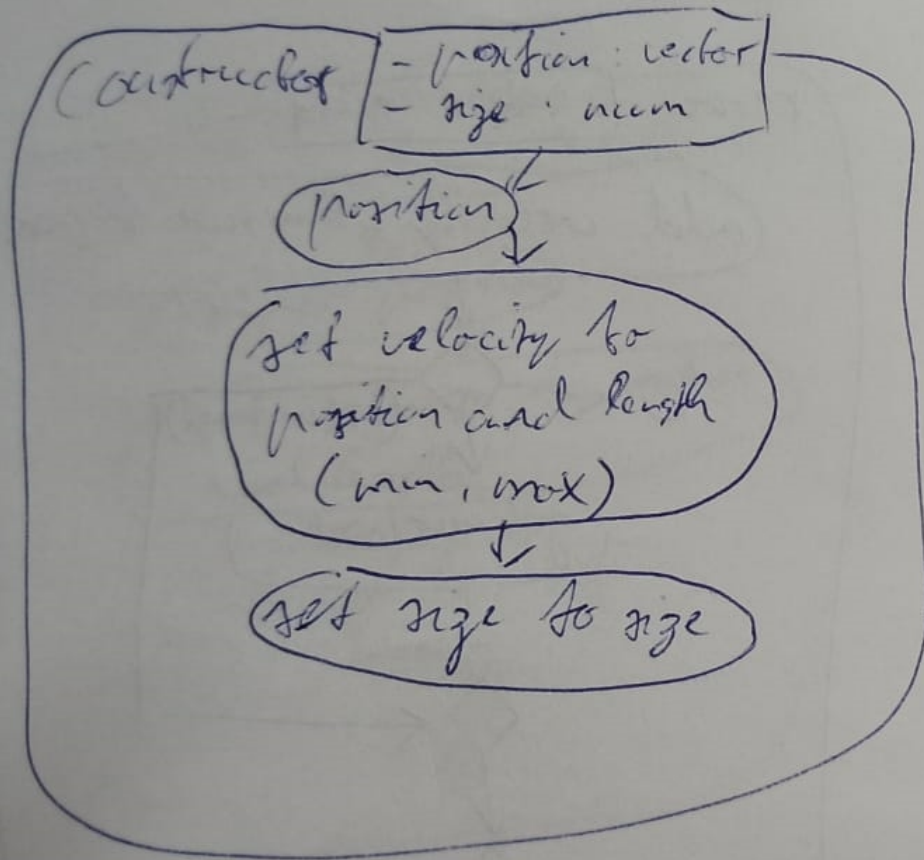 Constructor
- position : vector
- size : num
position
set velocity to
position and length
(min, max)
set size to size